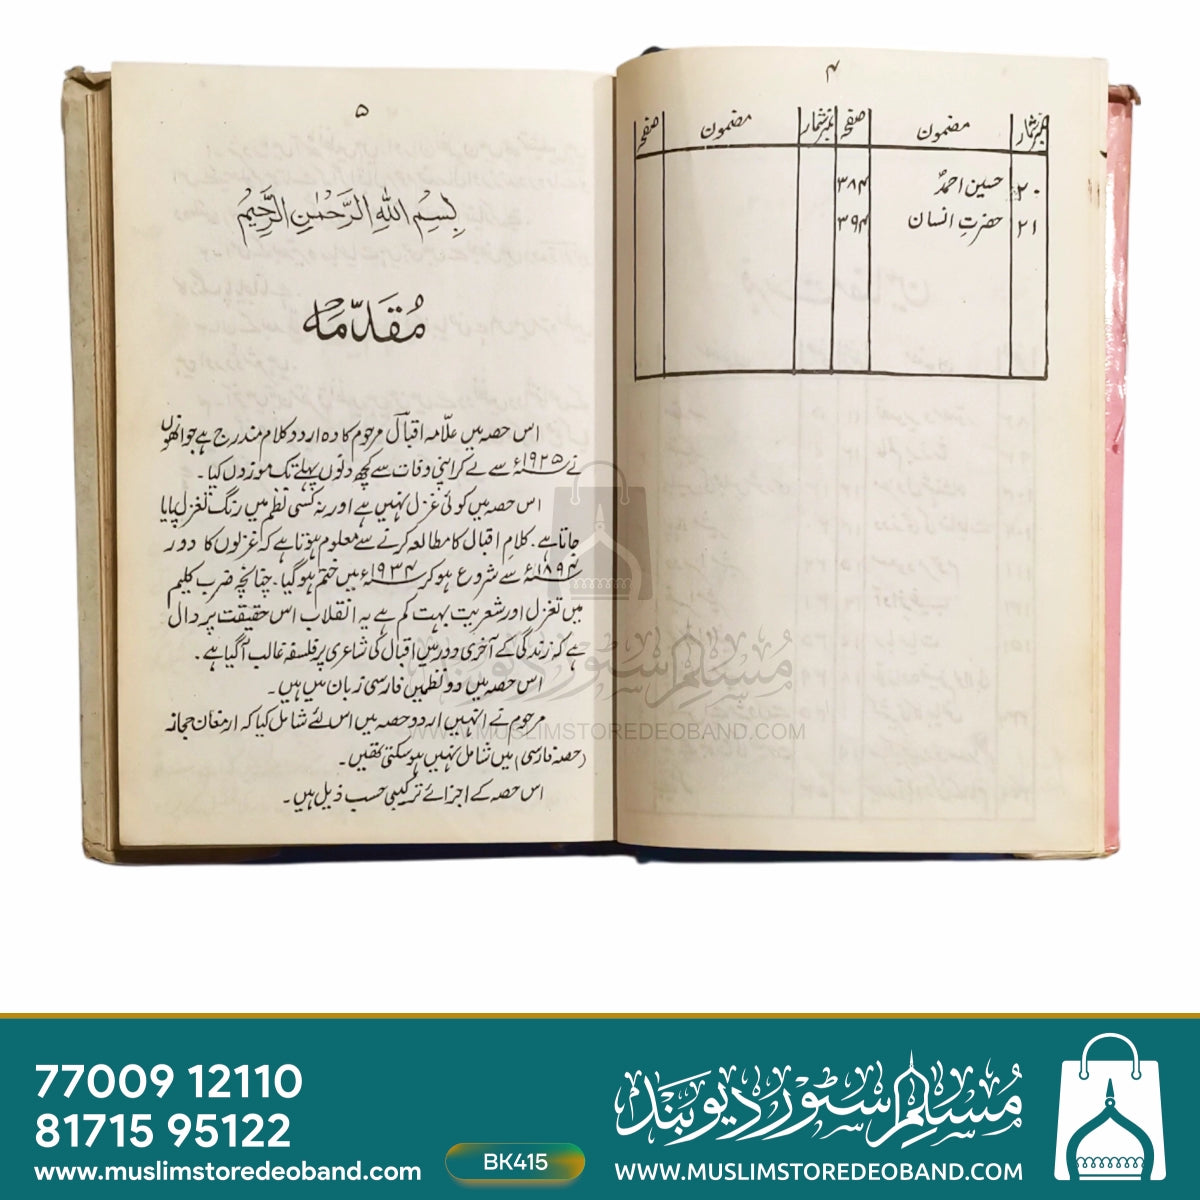 ۴
نمبرشمار مضمون صفحہ نمبرشمار مضمون صفحہ
۲۰ حسین احمدؒ ۳۸۴
۲۱ حضرتِ انسان ۳۹۴
۵
بِسْمِ اللّٰهِ الرَّحْمٰنِ الرَّحِيْمِ
مُقَدّمَہ
اس حصہ میں علّامہ اقبالؔ مرحوم کا وہ اردو کلام مندرج ہے جو انھوں
نے ۱۹۲۵ء سے لے کر اپنی وفات سے کچھ دنوں پہلے تک موزوں کیا۔
اس حصہ میں کوئی غزل نہیں ہے اور نہ کسی نظم میں رنگ تغزل پایا
جاتا ہے۔ کلام اقبال کا مطالعہ کرنے سے معلوم ہوتا ہے کہ غزلوں کا دور
۱۸۹۴ء سے شروع ہو کر ۱۹۳۴ء میں ختم ہو گیا۔ چنانچہ ضرب کلیم
میں تغزل اور شعریت بہت کم ہے یہ انقلاب اس حقیقت پر دال
ہے کہ زندگی کے آخری دور میں اقبال کی شاعری پر فلسفہ غالب آگیا ہے۔
اس حصہ میں دو نظمیں فارسی زبان میں ہیں۔
مرحوم نے انہیں اردو حصہ میں اس لئے شامل کیا کہ ارمغان حجاز
(حصہ فارسی) میں شامل نہیں ہو سکتی تھیں۔
اس حصہ کے اجزائے ترکیبی حسب ذیل ہیں۔
مُسلم سٹور دیوبند
WWW.MUSLIMSTOREDEOBAND.COM
77009 12110
81715 95122
www.muslimstoredeoband.com
BK415
مُسلم سٹور دیوبند
WWW.MUSLIMSTOREDEOBAND.COM